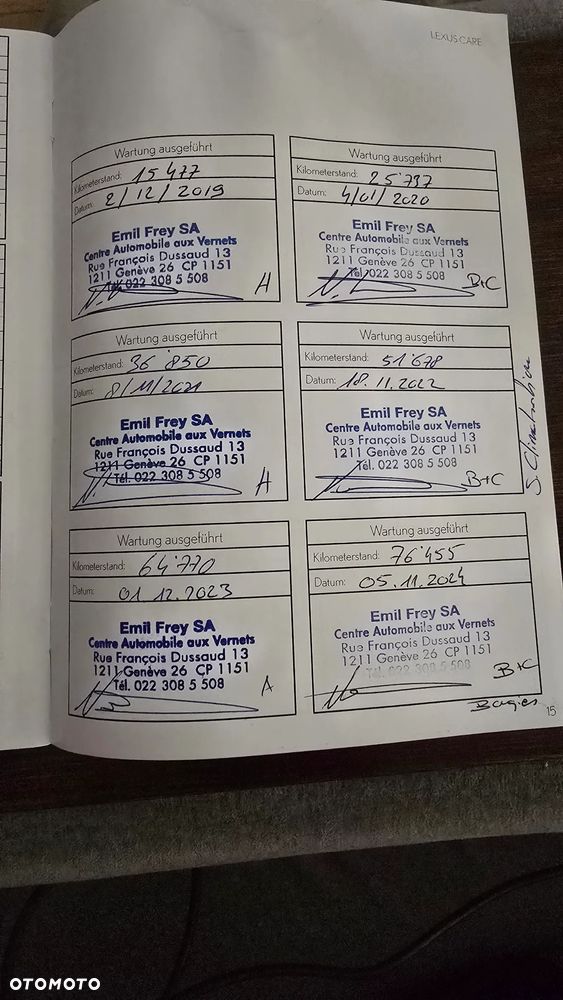 LEXUS CARE
Wartung ausgeführt
Kilometerstand: 15 477
Datum: 2/12/2019
Emil Frey SA
Centre Automobile aux Vernets
Rue François Dussaud 13
1211 Genève 26 CP 1151
Tél. 022 308 5 508
A
Wartung ausgeführt
Kilometerstand: 25'737
Datum: 4/01/2020
Emil Frey SA
Centre Automobile aux Vernets
Rue François Dussaud 13
1211 Genève 26 CP 1151
Tél. 022 308 5 508
B+C
Wartung ausgeführt
Kilometerstand: 36'850
Datum: 8/11/2021
Emil Frey SA
Centre Automobile aux Vernets
Rue François Dussaud 13
1211 Genève 26 CP 1151
Tél. 022 308 5 508
A
Wartung ausgeführt
Kilometerstand: 51'678
Datum: 18.11.2022
Emil Frey SA
Centre Automobile aux Vernets
Rue François Dussaud 13
1211 Genève 26 CP 1151
Tél. 022 308 5 508
B+C
S. Climatisation
Wartung ausgeführt
Kilometerstand: 64'770
Datum: 01.12.2023
Emil Frey SA
Centre Automobile aux Vernets
Rue François Dussaud 13
1211 Genève 26 CP 1151
Tél. 022 308 5 508
A
Wartung ausgeführt
Kilometerstand: 76'455
Datum: 05.11.2024
Emil Frey SA
Centre Automobile aux Vernets
Rue François Dussaud 13
1211 Genève 26 CP 1151
Tél. 022 308 5 508
B+C
15
OTOMOTO